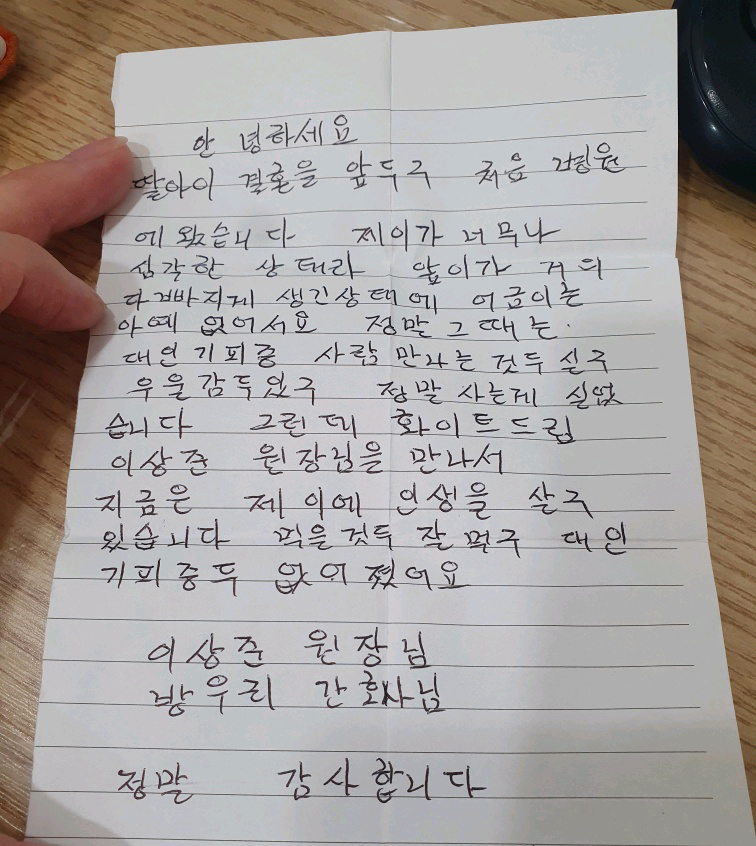 안녕하세요
딸아이 결혼을 앞두구 처음 병원
에 왔습니다 제이가 너무나
심각한 상태라 앞이가 거의
다 생긴상태에 어금이는
아예 없어서요 정말 그때는.
대인기피증 사람 만나는 것두 실구
우울감두있구 정말 사는게 실었
습니다 그런데 화이트드림
이상준 원장님을 만나서
지금은 제 이에 인생을 살구
있습니다 먹을것두 잘먹구 대인
기피증두 없어졌어요
이상준 원장님
방우리 간호사님
정말 감사합니다